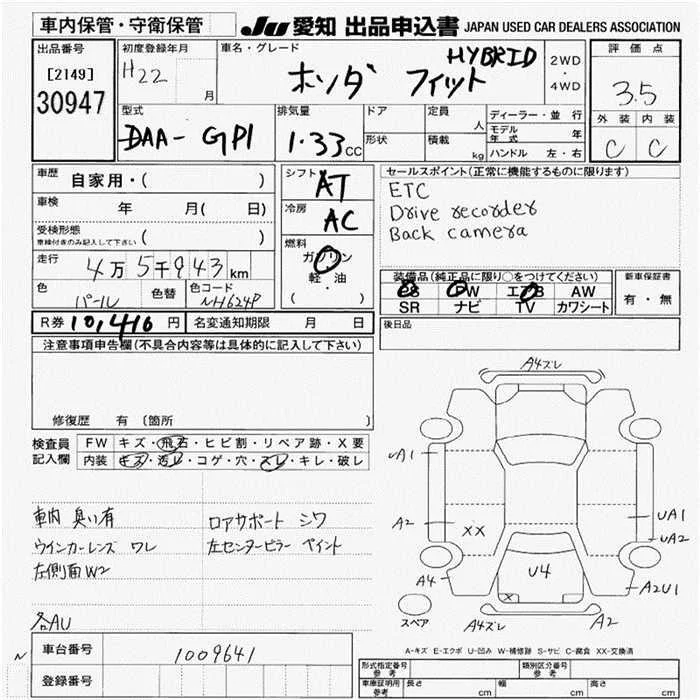 車内保管・守衛保管
JU 愛知 出品申込書 JAPAN USED CAR DEALERS ASSOCIATION
出品番号
[2149]
30947
初度登録年月
H22
月
車名・グレード
HYBRID
ホンダ フィット
2WD
・
4WD
評価点
3.5
外装 内装
C C
型式
DAA-GP1
排気量
1.33cc
ドア
形状
定員
人
積載
kg
ディーラー・並行
モデル年式 年
ハンドル 左・右
車歴 自家用・( )
車検 年 月( 日)
受検形態
車検付きのみ記入して下さい ( )
走行 4万5千943km
色 パール
色替
色コード NH624P
シフト AT
冷房 AC
燃料
ガソリン
軽・油
( )
セールスポイント(正常に機能するものに限ります)
ETC
Drive recorder
Back camera
装備品(純正品に限り○をつけてください)
PS PW エアB AW
SR ナビ TV カワシート
新車保証書
有・無
R券 10,410 円 名変通知期限 月 日
後日品
注意事項申告欄(不具合内容等は具体的に記入して下さい)
修復歴 有 〔箇所 〕
検査員
記入欄
FW キズ・飛石・ヒビ割・リペア跡・X要
内装 キズ・汚レ・コゲ・穴・スレ・キレ・破レ
車内 臭い有
ウインカーレンズ ワレ
左側面W2
各AU
ロアサポート シワ
左センターピラー ペイント
A4ズレ
UA1
A2
XX
UA1
UA2
A4
U4
A2U1
X
スペア
A4ズレ
A2
A-キズ E-エクボ U-凹み W-補修跡 S-サビ C-腐食 XX-交換済
N
車台番号 1009641
登録番号
形式指定番号
参考
類別区分番号
参考
車庫証明用
参考
長さ cm 幅 cm 高さ cm